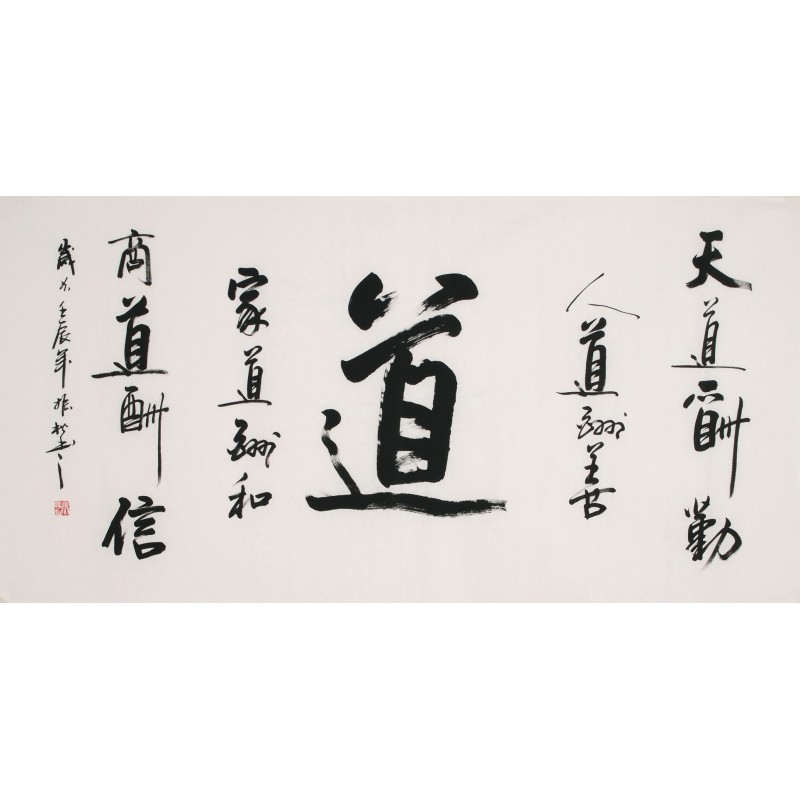 天道酬勤
人道酬善
道
家道酬和
商道酬信
歲次壬辰年振松書